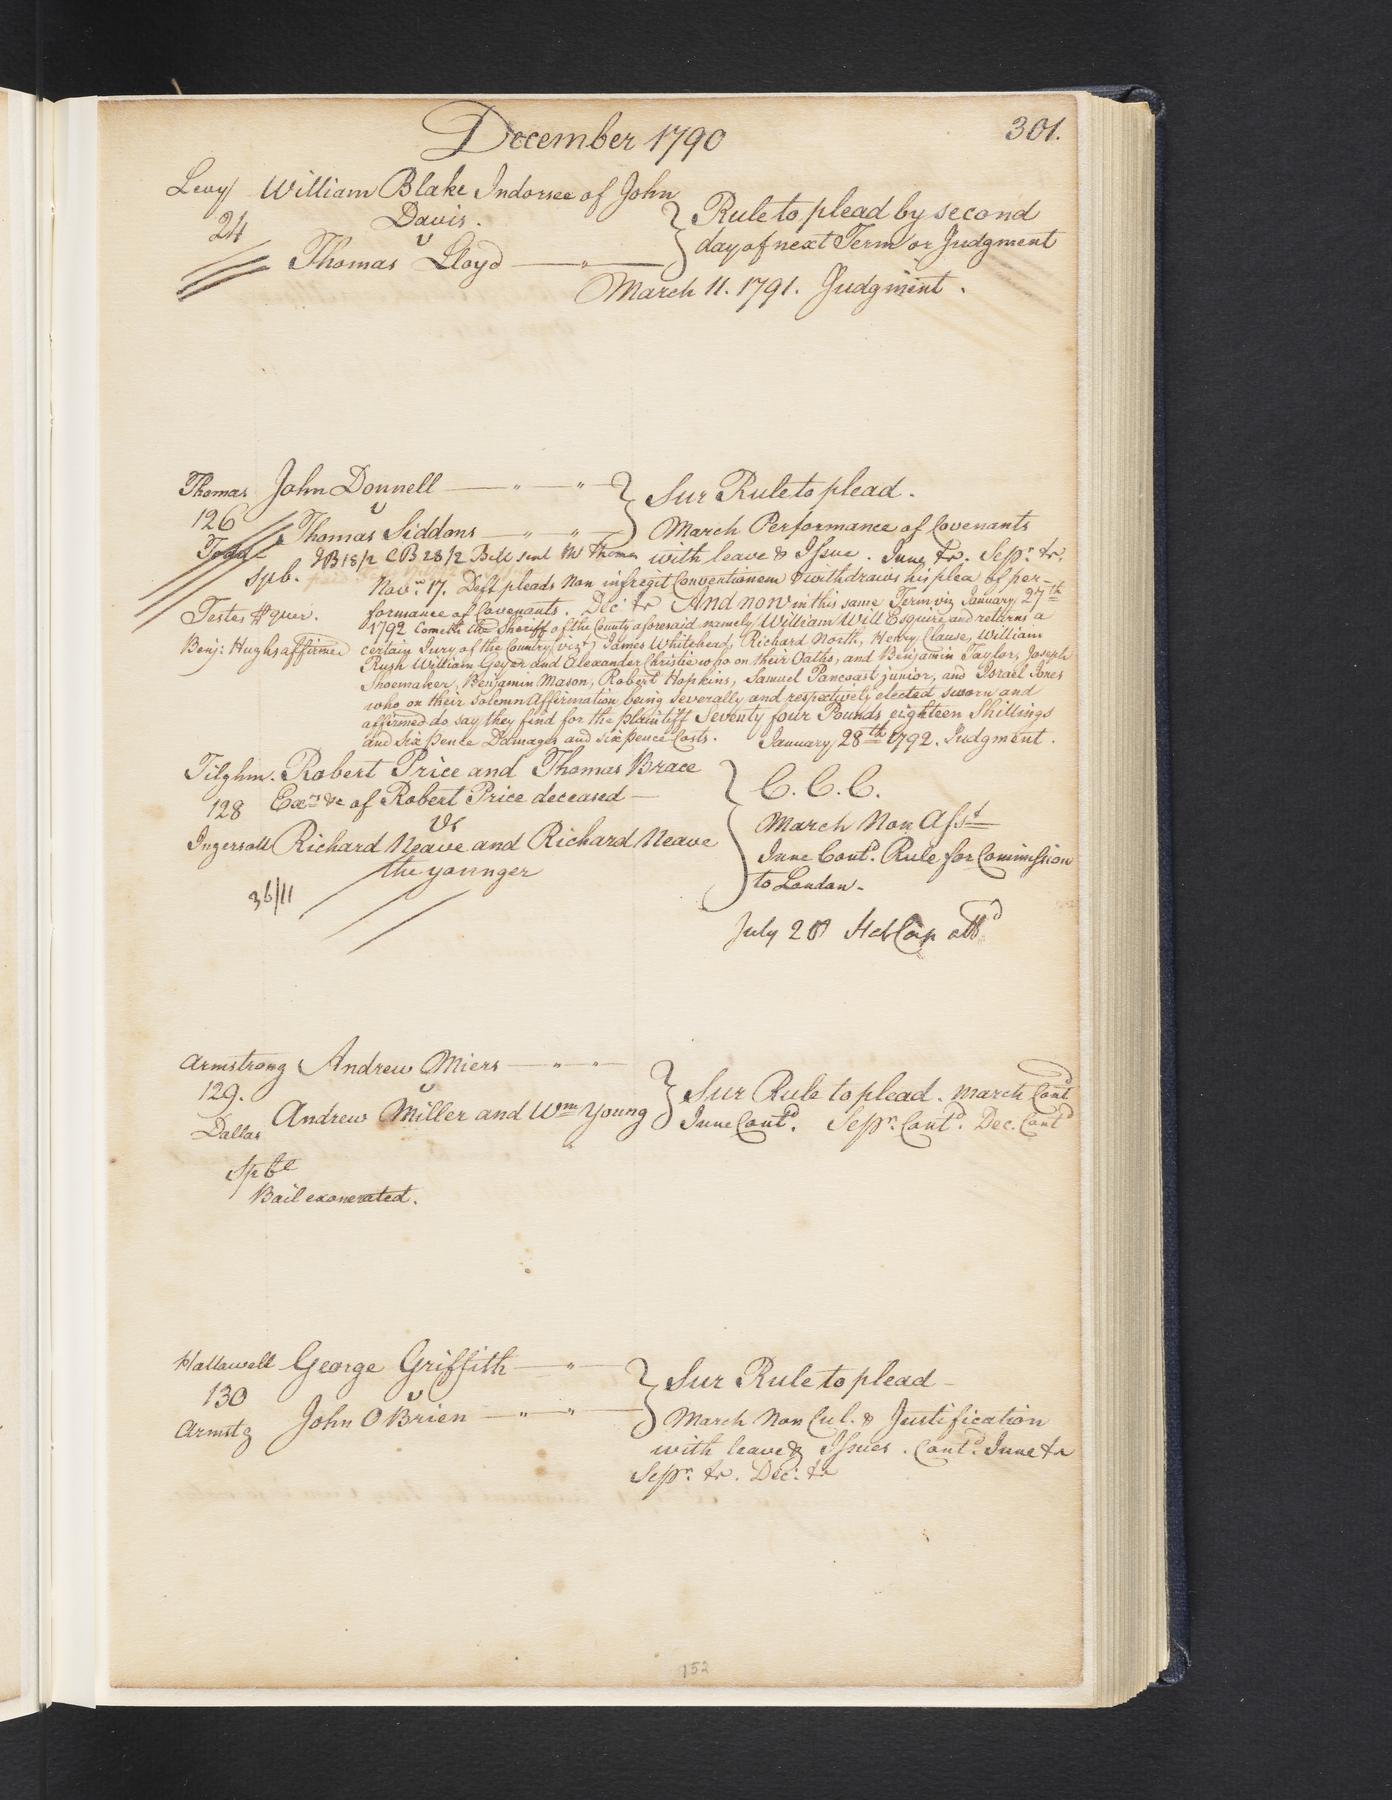 December 1790
301.
Levy William Blake Indorsee of John
24 Davis.
v
Thomas Lloyd
Rule to plead by second
day of next Term or Judgment
March 11. 1791. Judgment.
Thomas John Donnell
126 v
Thomas Siddons
Sur Rule to plead.
March Performance of Covenants
JB 18/2 CB 28/2 Bill sent Mr Thomas with leave & Issue. June &c. Sepr. &c.
Spb. Novr. 17. Deft pleads Non infregit Conventionem & withdraws his plea of per-
Testes #quer. formance of Covenants. Dec: &c And now in this same Term viz January 27th
1792 Cometh the Sheriff of the County aforesaid namely William Will Esquire and returns a
Benj: Hughs affirmed certain Jury of the Country (vizt) James Whitehead, Richard North, Henry Clause, William
Rush William Geyer and Alexander Christie who on their Oaths, and Benjamin Taylor, Joseph
Shoemaker, Benjamin Mason, Robert Hopkins, Samuel Pancoast junior, and Israel Jones
who on their solemn Affirmation being severally and respectively elected sworn and
affirmed do say they find for the plaintiff Seventy four Pounds eighteen Shillings
and six Pence Damages and six pence Costs. January 28th 1792. Judgment.
Tilghm. Robert Price and Thomas Brace
128 Exrs &c of Robert Price deceased
vs
Ingersoll Richard Neave and Richard Neave
the younger
36/11
C. C. C.
March Non Asst
June Contd. Rule for Commission
to London.
July 20
Armstrong Andrew Miers
129. v
Dallas Andrew Miller and Wm Young
Sur Rule to plead. March Contd
June Contd. Sepr. Contd. Dec. Contd
Spbl
Bail exonerated.
Hallowell George Griffith
130 v
Armstg John O Brien
Sur Rule to plead
March Non Cul. & Justification
with leave & Issues. Contd. June &c
Sepr. &c. Dec: &c
152